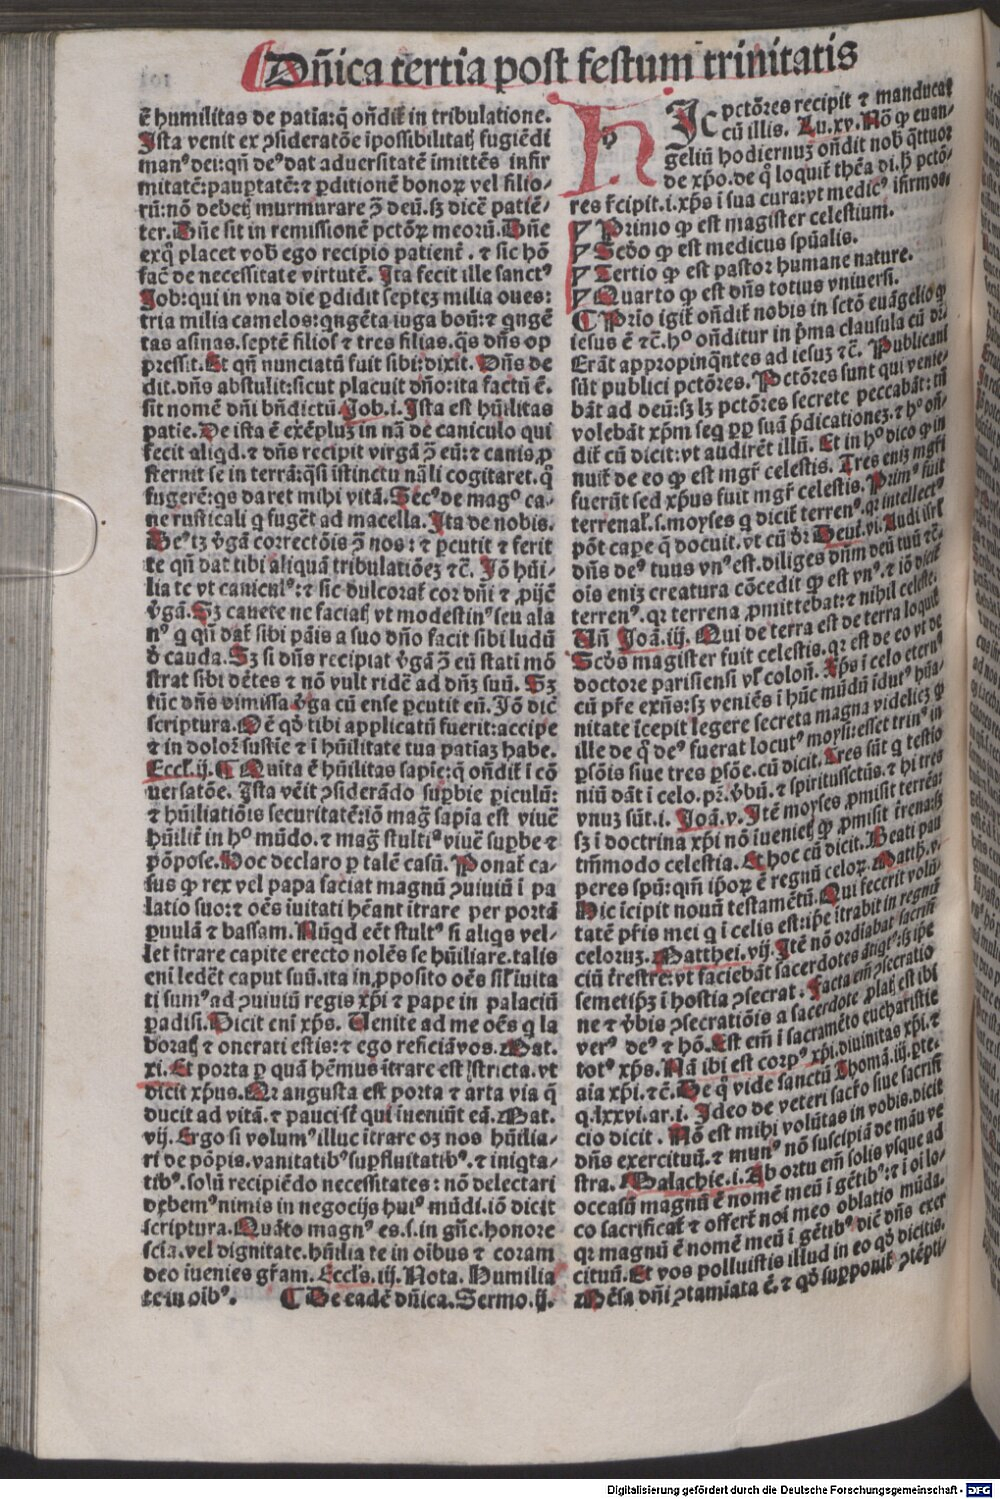 Dñica tertia post festum trinitatis
ē humilitas de patiā:q̄ oñdit̄ in tribulatione.
Ista venit ex ꝯsideratōe īpossibilitatꝭ fugiēdi
manꝰ dei:qñ deꝰ dat aduersitatē īmittēs infir
mitatē:paupertatē:⁊ ꝑditionē bonoꝝ vel filio-
rū:nō debetꝭ murmurare ꝯ̄ deū.sꝫ dicē patiē-
ter.Dñe sit in remissionē pctōꝝ meorū.Dñe
exq̄ placet vob̄ ego recipio patient̄.⁊ sic hō
facē de necessitate virtutē. Ita fecit ille sanctꝰ
Job:qui in vna die ꝑdidit septeꝫ milia oues:
tria milia camelos:qngēta iuga boū:⁊ qngē
tas asinas.septē filios ⁊ tres filias.qs dñs op
pressit.Et qñ nunciatū fuit sibi:dixit. Dñs de
dit.dñs abstulit:sicut placuit dño:ita factū ē.
sit nomē dñi bñdictū.Job.i.Ista est hūilitas
patie.De ista ē exēpluꝫ in nā de caniculo qui
fecit aliqd.⁊ dñs recipit virgā ꝯ̄ eū:⁊ canis ꝓ
sternit se in terrā:qsi īstinctu nāli cogitaret.qꝰ
fugerē:qs daret mihi vitā.Sēcꝰ de magº ca-
ne rusticali q fugēt ad macella.Ita de nobis.
Deꝰ tꝫ v̄gā correctōis ꝯ̄ nos:⁊ ꝑcutit ⁊ ferit
te qñ dat tibi aliquā tribulatiōeꝫ ⁊c̄. Jō hūi-
lia te vt caniculꝰ:⁊ sic dulcorat̄ cor dñi ⁊ ꝓijcē
v̄gā.Sꝫ cauete ne faciatꝭ vt modestinꝰ seu ala
nꝰ q qñ dat̄ sibi pāis a suo dño facit sibi ludū
d̄ cauda.Sꝫ si dñs recipiat v̄gā ꝯ̄ eū stati mō
strat sibi dētes ⁊ nō vult ridē ad dñꝫ suū. Sꝫ
tūc dñs dimissa v̄ga cū ense ꝑcutit eū.Jō dic̄
scriptura.Oē qd̄ tibi applicatū fuerit:accipe
⁊ in dolor̄ sustie ⁊ ī hūilitate tua patiaꝫ habe.
Eccl̄.ij.¶ Quīta ē hūilitas sapie:q̄ oñdit̄ ī cō
uersatōe. Ista vēit ꝯsiderādo suꝑbie ꝑiculū:
⁊ hūiliatiōis securitatē:iō maḡ sapia est viuē
hūilit̄ in hº mūdo.⁊ maḡ stultiꝰ viuē suꝑbe ⁊
pōpose.Hoc declaro ꝑ talē casū. Ponat̄ ca-
sus ꝙ rex vel papa faciat magnū ꝯuiuiū ī pa
latio suo:⁊ oēs īuitati hēant ītrare per portā
ꝑuulā ⁊ bassam.Nūqd eēt stultꝰ si aliqs vel-
let ītrare capite erecto nolēs se hūiliare.talis
eni ledēt caput suū.ita in ꝓposito oēs sil̄ īuita
ti sumꝰ ad ꝯuiuiū regis xp̄i ⁊ pape in palaciū
ꝑadisi.Dicit eni xp̄s. Venite ad me oēs q la
boratꝭ ⁊ onerati estis:⁊ ego reficiā vos.Mat.
xi.Et porta ꝑ quā hēmus ītrare est stricta.vt
dicit xp̄us.Qr angusta est porta ⁊ arta via q̄
ducit ad vitā.⁊ pauci sūt qui īueniūt eā.Mat.
vij.Ergo si volumꝰ illuc ītrare oꝫ nos hūilia-
ri de pōpis.vanitatibꝰ suꝑfluitatibꝰ.⁊ iniqta-
tibꝰ.solū recipiēdo necessitates:nō delectari
debemꝰ nimis in negocijs huiꝰ mūdi.iō dicit
scriptura.Quāto magnꝰ es.s.in gñe.honore
scia.vel dignitate.hūilia te in oībus ⁊ coram
deo īuenies gr̄am. Eccl̄s.iij.Nota. Humilia
te in oib̄ꝰ. ¶ De eadē dñica.Sermo.ij.
HIc pctōres recipit ⁊ manducat
cū illis. Lu.xv.Nō ꝙ euan-
geliū hodiernuꝫ oñdit nob̄ q̄tuor
de xp̄o.de q̄ loquit̄ thēa di.h̄ pctō-
res r̄cipit.i.xp̄s ī sua cura:vt medicꝰ ifirmos.
Primo ꝙ est magister celestium.
Scd̄o ꝙ est medicus spūalis.
Tertio ꝙ est pastor humane nature.
Quarto ꝙ est dñs totius vniuersi.
¶ Prīo igit̄ oñdit̄ nobis in sctō euāgelio ꝙ
iesus ē ⁊c̄.hº oñditur in p̄ma clausula cū dr̄
Erāt appropinq̄ntes ad iesuꝫ ⁊c̄. Publicani
sūt publici pctōres. Pctōres sunt qui venie-
bāt ad deū:sꝫ lꝫ pctōres secrete peccabāt:tñ
volebāt xp̄m seq ꝓp suā p̄dicationeꝫ.⁊ hº oñ-
dit̄ cū dicit:vt audirēt illū. Et in hº dico ꝙ in
nuit̄ de eo ꝙ est mgr̄ celestis. Tres eniꝫ mgr̄i
fuerūt sed xp̄us fuit mgr̄ celestis. Primꝰ fuit
terrenal̄.s.moyses q dicit̄ terrenꝰ.qr intellectꝰ
pōt caꝑe q̄ docuit.vt cū dr̄ Deut̄.vi.Audi isrl̄
dñs deꝰ tuus vnꝰ est.diliges dñm deū tuū ⁊c̄.
ois eniꝫ creatura cōcedit ꝙ est vnꝰ.⁊ iō dicit̄
terrenꝰ.qr terrena ꝓmittebat:⁊ nihil celeste.
Uñ Joā.iij. Qui de terra est de terra loquit̄
Scd̄s magister fuit celestis.qr est de eo vt de
doctore parisiensi vl̄ coloñ. Xp̄s ī celo eternꝰ
cū p̄re exñs:sꝫ veniēs ī hūc mūdū īdutꝰ hūa-
nitate īcepit legere secreta magna videlicꝫ ꝙ
ille de q̄ deꝰ fuerat locutꝰ moysi:esset trinꝰ in
ꝑsōis siue tres ꝑsōe.cū dicit.Tres sūt q testīo
niū dāt ī celo.pr̄.v̄bū.⁊ spiritussctūs.⁊ hi tres
vnuꝫ sūt.i. Joā.v. Itē moyses ꝓmisit terrēa:
sꝫ ī doctrina xp̄i nō īuenietꝭ ꝙ ꝓmisit t̄rena:sꝫ
tm̄modo celestia. Et hoc cū dicit. Beati pau
peres spū:qm̄ ip̄oꝝ ē regnū celoꝝ. Matth.v.
Hic īcipit nouū testamētū.Qui fecerit volū-
tatē p̄ris mei q ī celis est:ip̄e ītrabit in regnū
celoruꝫ. Matthei.vij. Itē nō ordiabat̄ sacrifi
ciū t̄restre:vt faciebāt sacerdotes ātiqꝰ:sꝫ ip̄e
semetip̄ꝫ ī hostia ꝯsecrat. Facta em̄ ꝯsecratio
ne ⁊ v̄bis ꝯsecratiōis a sacerdote ꝓlatꝭ est ibi
verꝰ deꝰ ⁊ hō.Est em̄ ī sacramēto eucharistie
totꝰ xp̄s. Nā ibi est corpꝰ xp̄i.diuinitas xp̄i.⁊
aīa xp̄i.⁊c̄.De q̄ vide sanctū Thomā.iij.ꝑte.
q.lxxvi.ar.i. Ideo de veteri sacr̄o siue sacrifi
cio dicit. Nō est mihi volūtas in vobis.dicit
dñs exercituū.⁊ munꝰ nō suscipiā de māu ve
stra. Malachie.i.Ab ortu em̄ solis vsque ad
occasū magnū ē nomē meū ī gētibꝰ:⁊ ī oi lo-
co sacrificat̄ ⁊ offert̄ noi meo oblatio mūda.
qr magnū ē nomē meū ī gētibꝰ dic̄ dñs exer
cituū.Et vos polluistis illud in eo qd̄ dicitis.
Mēsa dñi ꝯtamiata ē.⁊ qd̄ supponit̄ ꝯtēpti-
Digitalisierung gefördert durch die Deutsche Forschungsgemeinschaft - DFG